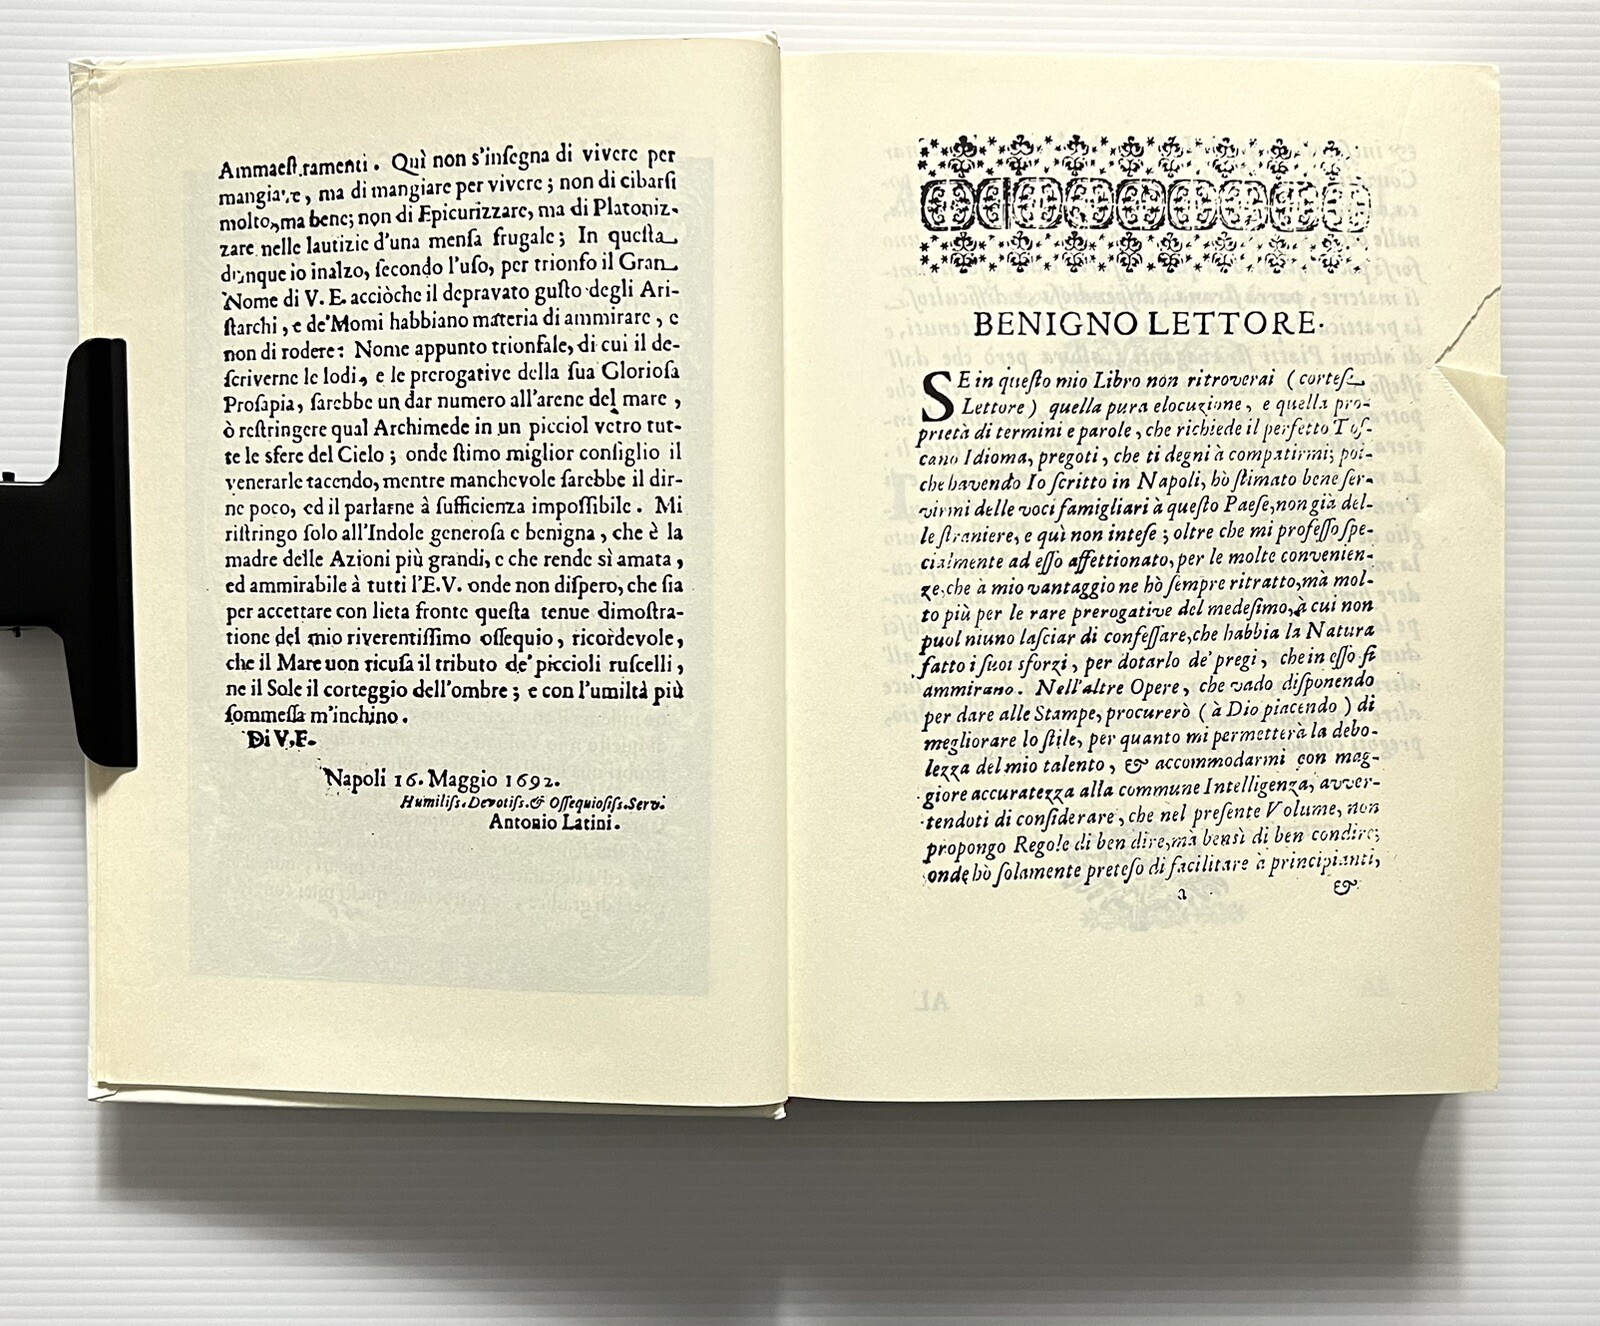 Ammaeſtramenti. Quì non s'inſegna di vivere per
mangiare, ma di mangiare per vivere; non di cibarſi
molto, ma bene; non di Epicurizzare, ma di Platoniz-
zare nelle lautizie d'una menſa frugale; In queſta
dunque io inalzo, ſecondo l'uſo, per trionfo il Gran
Nome di V. E. acciòche il depravato guſto degli Ari-
ſtarchi, e de'Momi habbiano materia di ammirare, e
non di rodere: Nome appunto trionfale, di cui il de-
ſcriverne le lodi, e le prerogative della ſua Glorioſa
Proſapia, ſarebbe un dar numero all'arene del mare,
ò reſtringere qual Archimede in un picciol vetro tut-
te le sfere del Cielo; onde ſtimo miglior conſiglio il
venerarle tacendo, mentre manchevole ſarebbe il dir-
ne poco, ed il parlarne à ſufficienza impoſſibile. Mi
riſtringo ſolo all'Indole generoſa e benigna, che è la
madre delle Azioni più grandi, e che rende sì amata,
ed ammirabile à tutti l'E.V. onde non diſpero, che ſia
per accettare con lieta fronte queſta tenue dimoſtra-
tione del mio riverentiſſimo oſſequio, ricordevole,
che il Mare uon ricuſa il tributo de' piccioli ruſcelli,
ne il Sole il corteggio dell'ombre; e con l'umiltà più
ſommeſſa m'inchino.
Di V.E.
Napoli 16. Maggio 1692.
Humiliſs. Devotiſs. & Oſſequioſiſs. Serv.
Antonio Latini.
BENIGNO LETTORE.
SE in queſto mio Libro non ritroverai (corteſe
Lettore) quella pura elocuzione, e quella pro-
prietà di termini e parole, che richiede il perfetto Toſ-
cano Idioma, pregoti, che ti degni à compatirmi; poi-
che havendo Io ſcritto in Napoli, hò ſtimato bene ſer-
virmi delle voci famigliari à queſto Paeſe, non già del-
le ſtraniere, e quì non inteſe; oltre che mi profeſſo ſpe-
cialmente ad eſſo affettionato, per le molte convenien-
ze, che à mio vantaggio ne hò ſempre ritratto, mà mol-
to più per le rare prerogative del medeſimo, à cui non
puol niuno laſciar di confeſſare, che habbia la Natura
fatto i ſuoi sforzi, per dotarlo de' pregi, che in eſſo ſi
ammirano. Nell'altre Opere, che vado diſponendo
per dare alle Stampe, procurerò (à Dio piacendo) di
megliorare lo ſtile, per quanto mi permetterà la debo-
lezza del mio talento, & accommodarmi con mag-
giore accuratezza alla commune Intelligenza, avver-
tendoti di conſiderare, che nel preſente Volume, non
propongo Regole di ben dire, mà bensì di ben condire;
onde hò ſolamente preteſo di facilitare à principianti,
a &